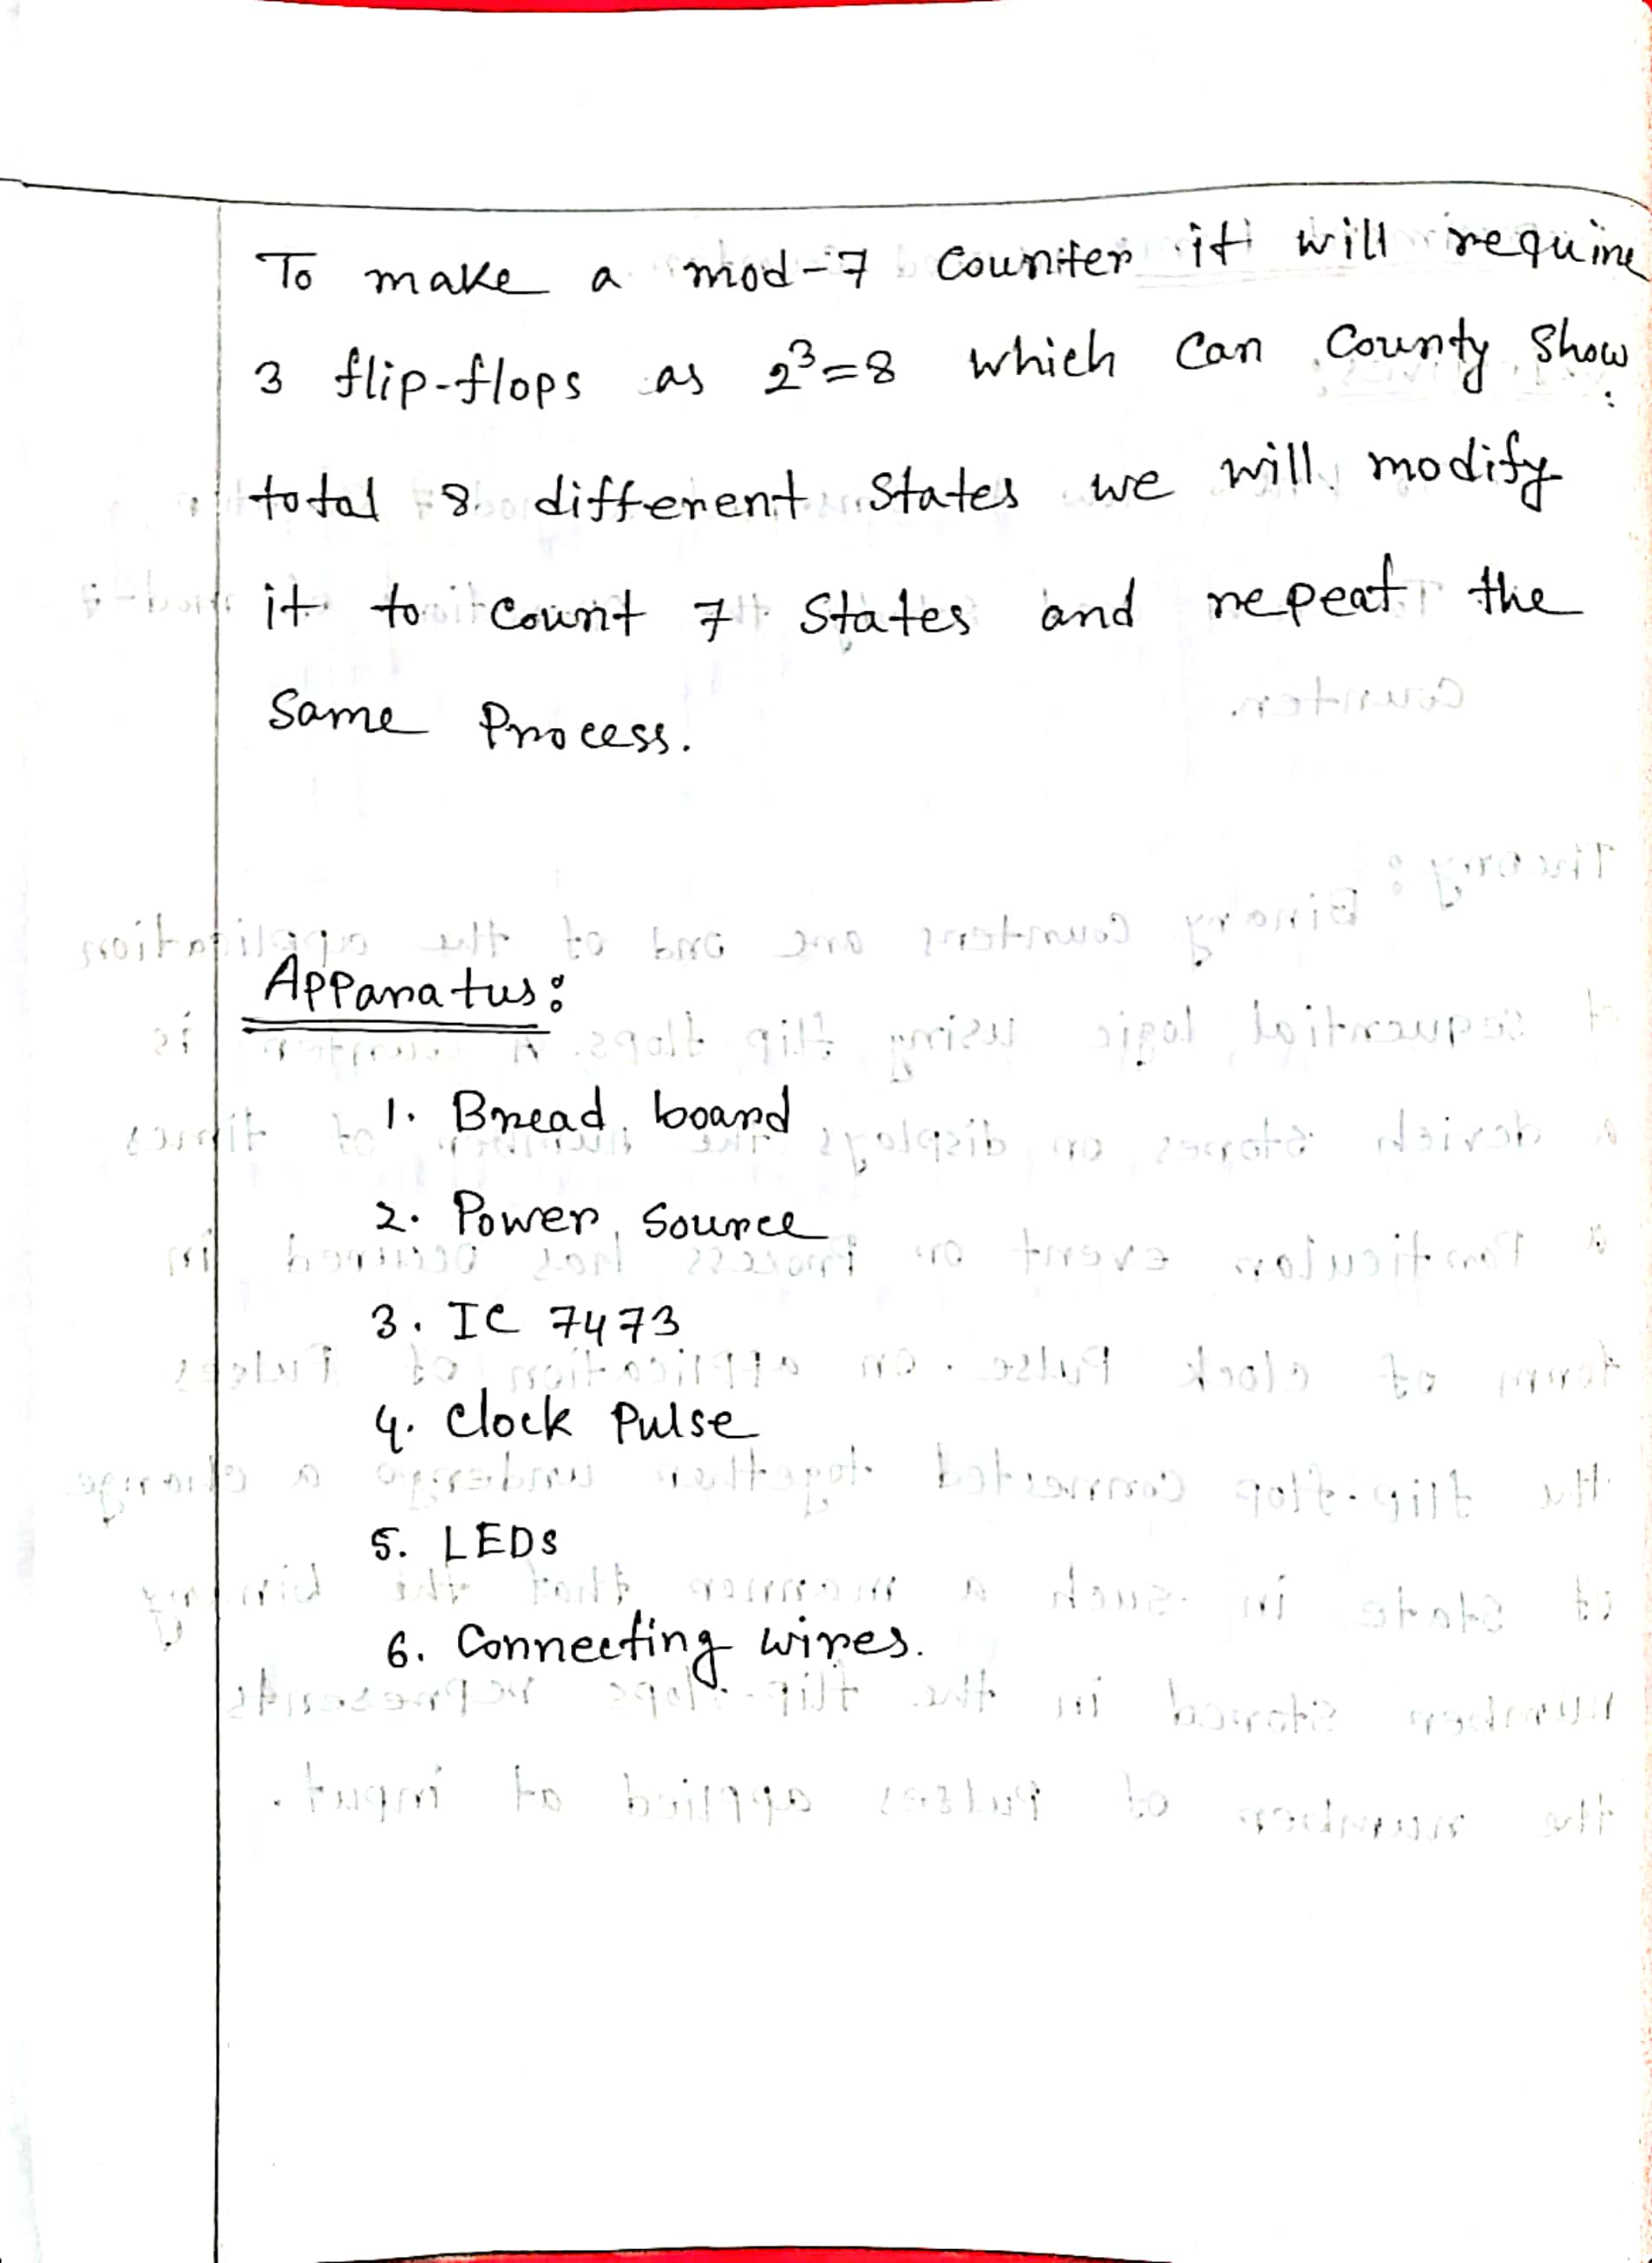 To make a mod-7 Counter it will require
3 flip-flops as 2³=8 which can County show
total 8 different states we will modify
it to count 7 States and repeat the
Same Process.
Apparatus:
1. Bread board
2. Power Source
3. IC 7473
4. Clock Pulse
5. LEDs
6. Connecting wires.